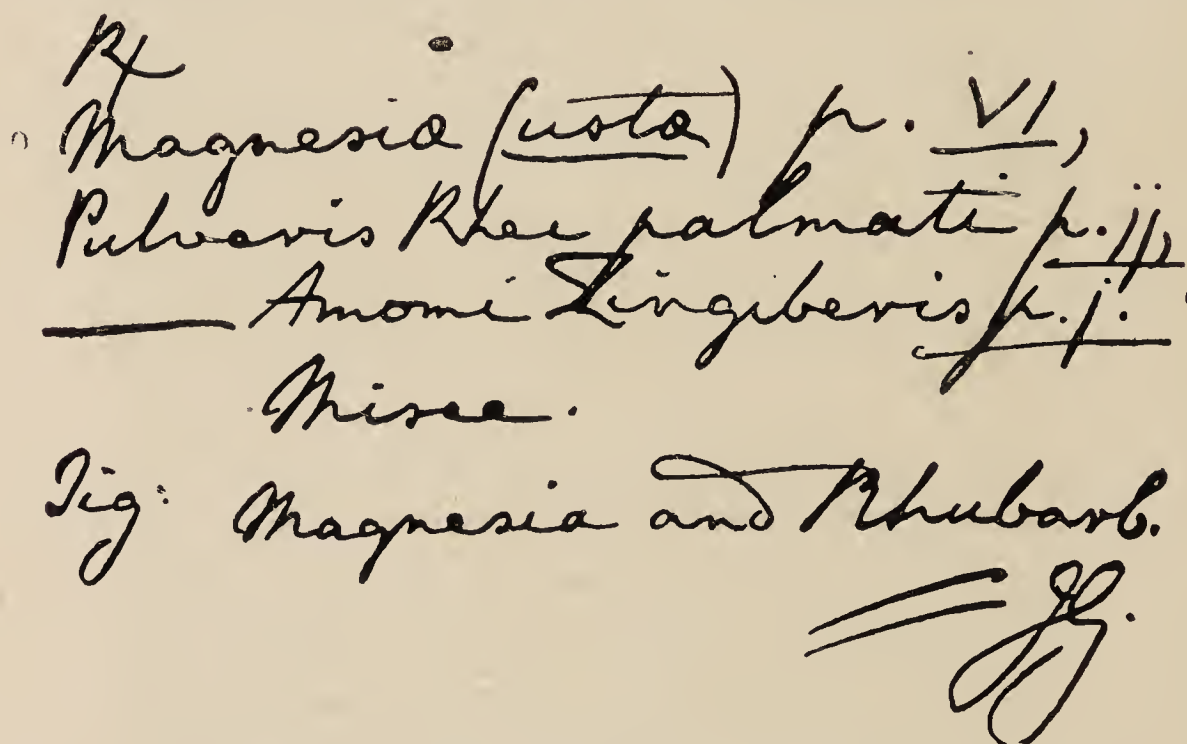 ℞
Magnesiæ (ustæ) p. VI,
Pulveris Rhei palmati p. ij,
—— Amomi Zingiberis p. j.
Misce.
Sig: Magnesia and Rhubarb.